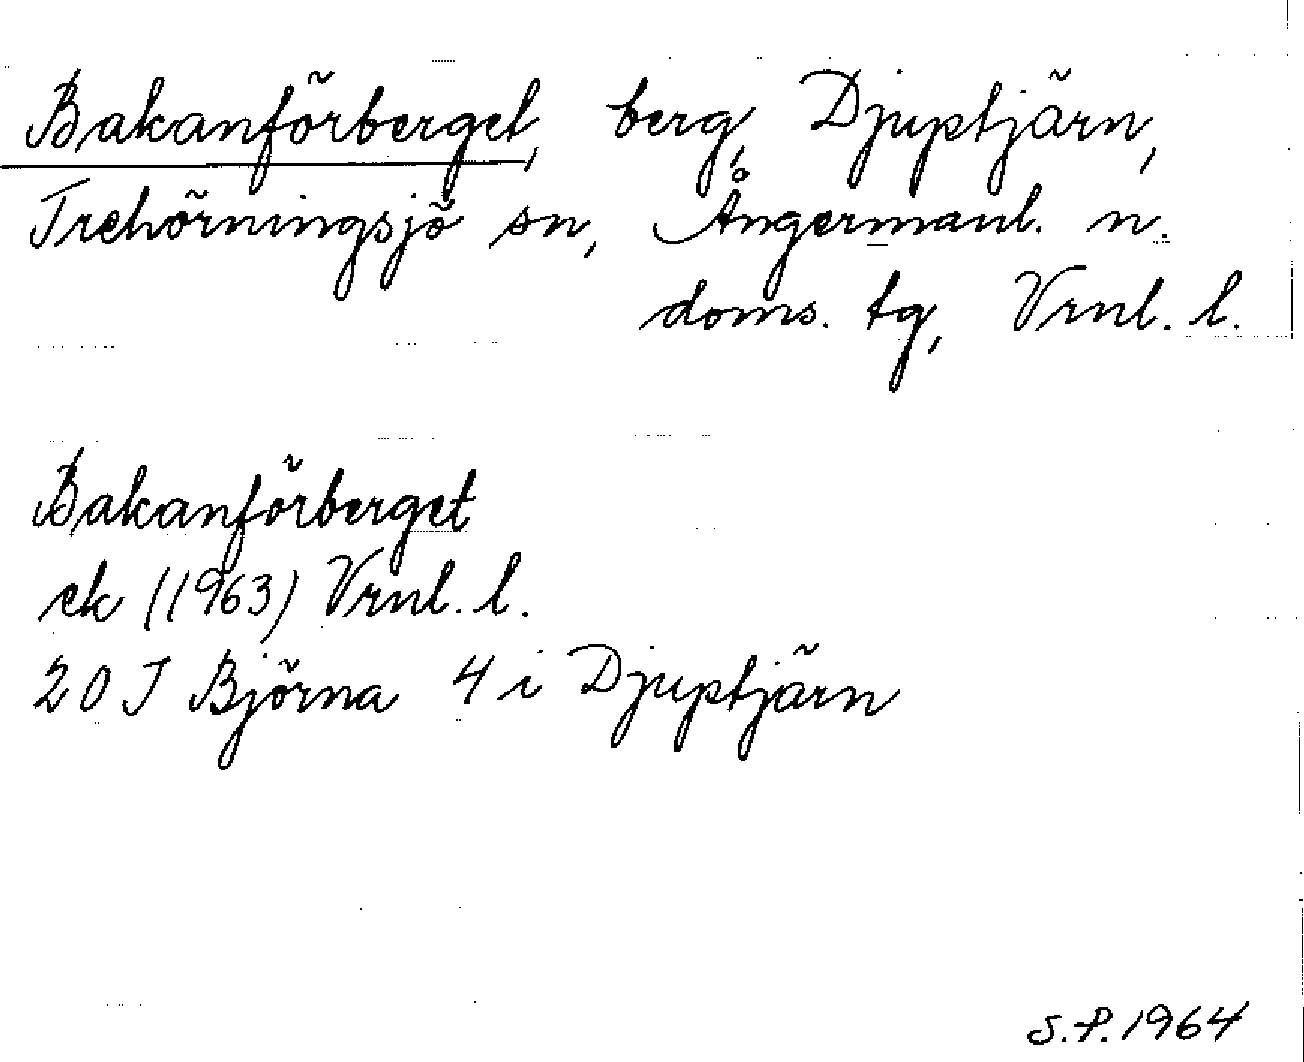 Bakanförberget, berg, Djuptjärn,
Trehörningsjö sn, Ångermanl. n.
doms. tg, Vrnl. l.
Bakanförberget
ek (1963) Vrnl. l.
20 J Björna 4 i Djuptjärn
S.P. 1964